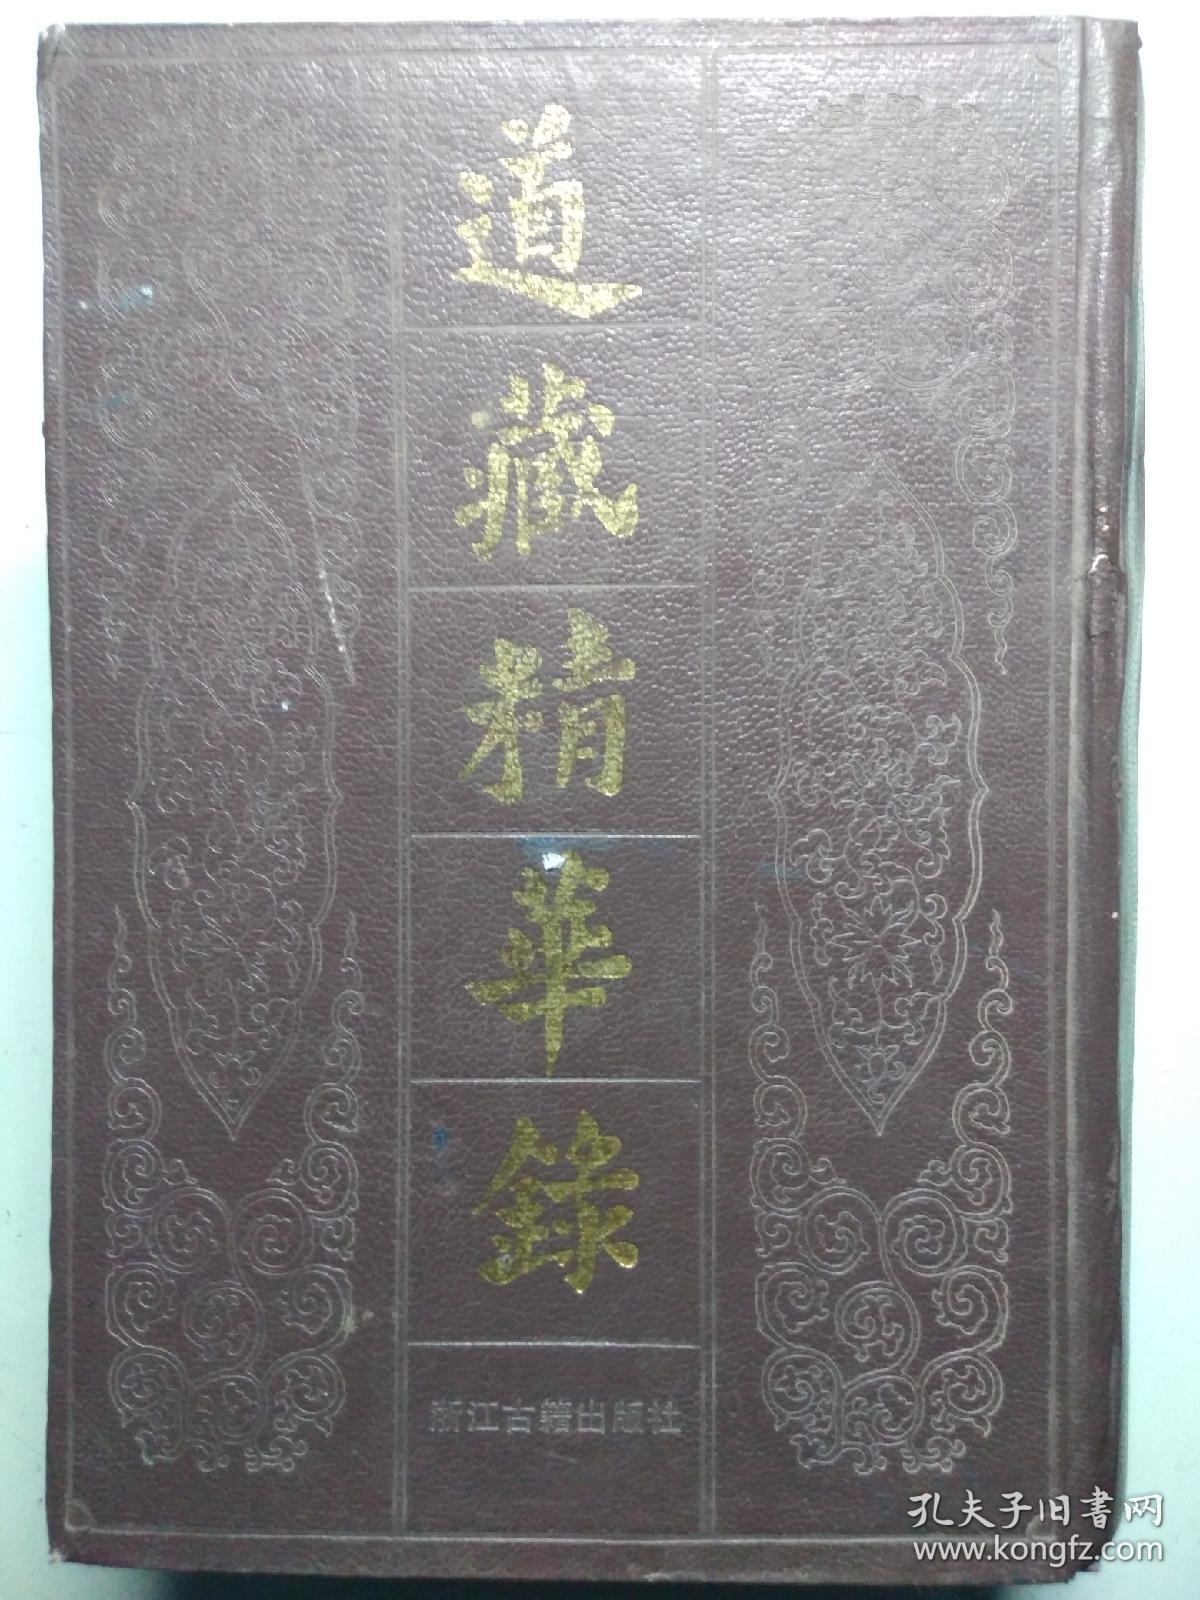 道藏精華錄
浙江古籍出版社
孔夫子旧書网
www.kongfz.com